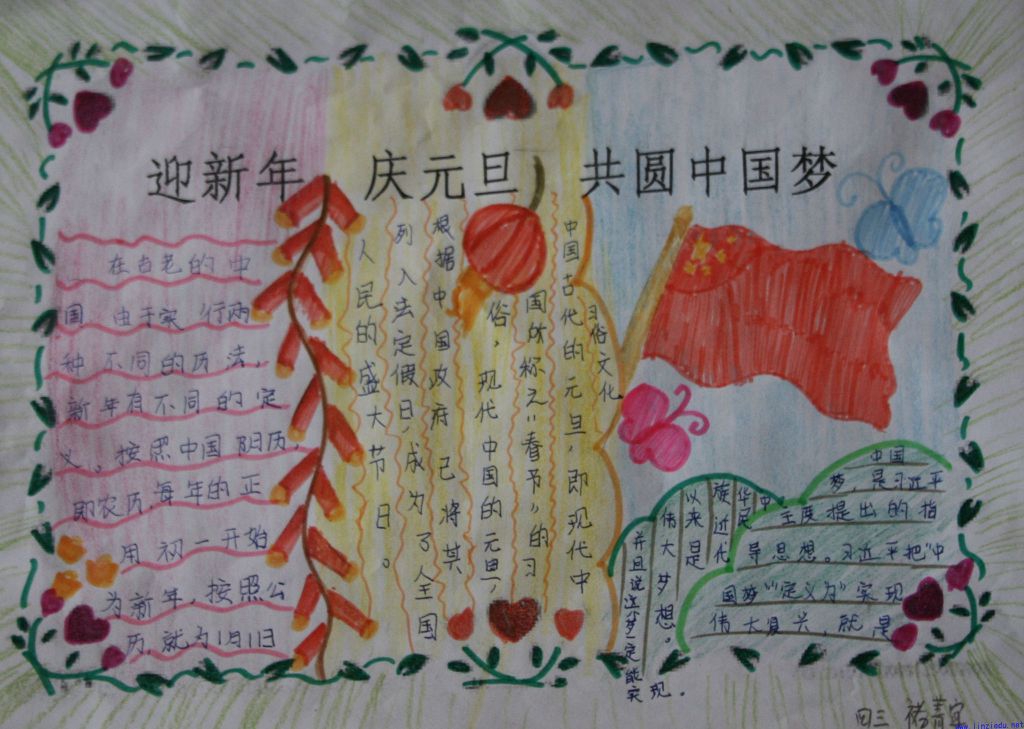 迎新年 庆元旦 共圆中国梦
在古老的中
国 由于实行两
种不同的历法，
新年有不同的定
义。按照中国阳历，
即农历，每年的正
用初一开始
为新年，按照公
历，就为1月1日
习俗文化
中国古代的元旦，即现代中
国所称之"春节"的习
俗，现代中国的元旦，
根据中国政府已将其
列入法定假日，成为了全国
人民的盛大节日。
中国
梦 是习近平
主度提出的指
导思想。习近平把"中
国梦"定义为"实现
伟大复兴，就是
中
华民
族近代
以来是
伟大梦想。
并且说这个梦一定能
实现。
四三
www.linziedu.net